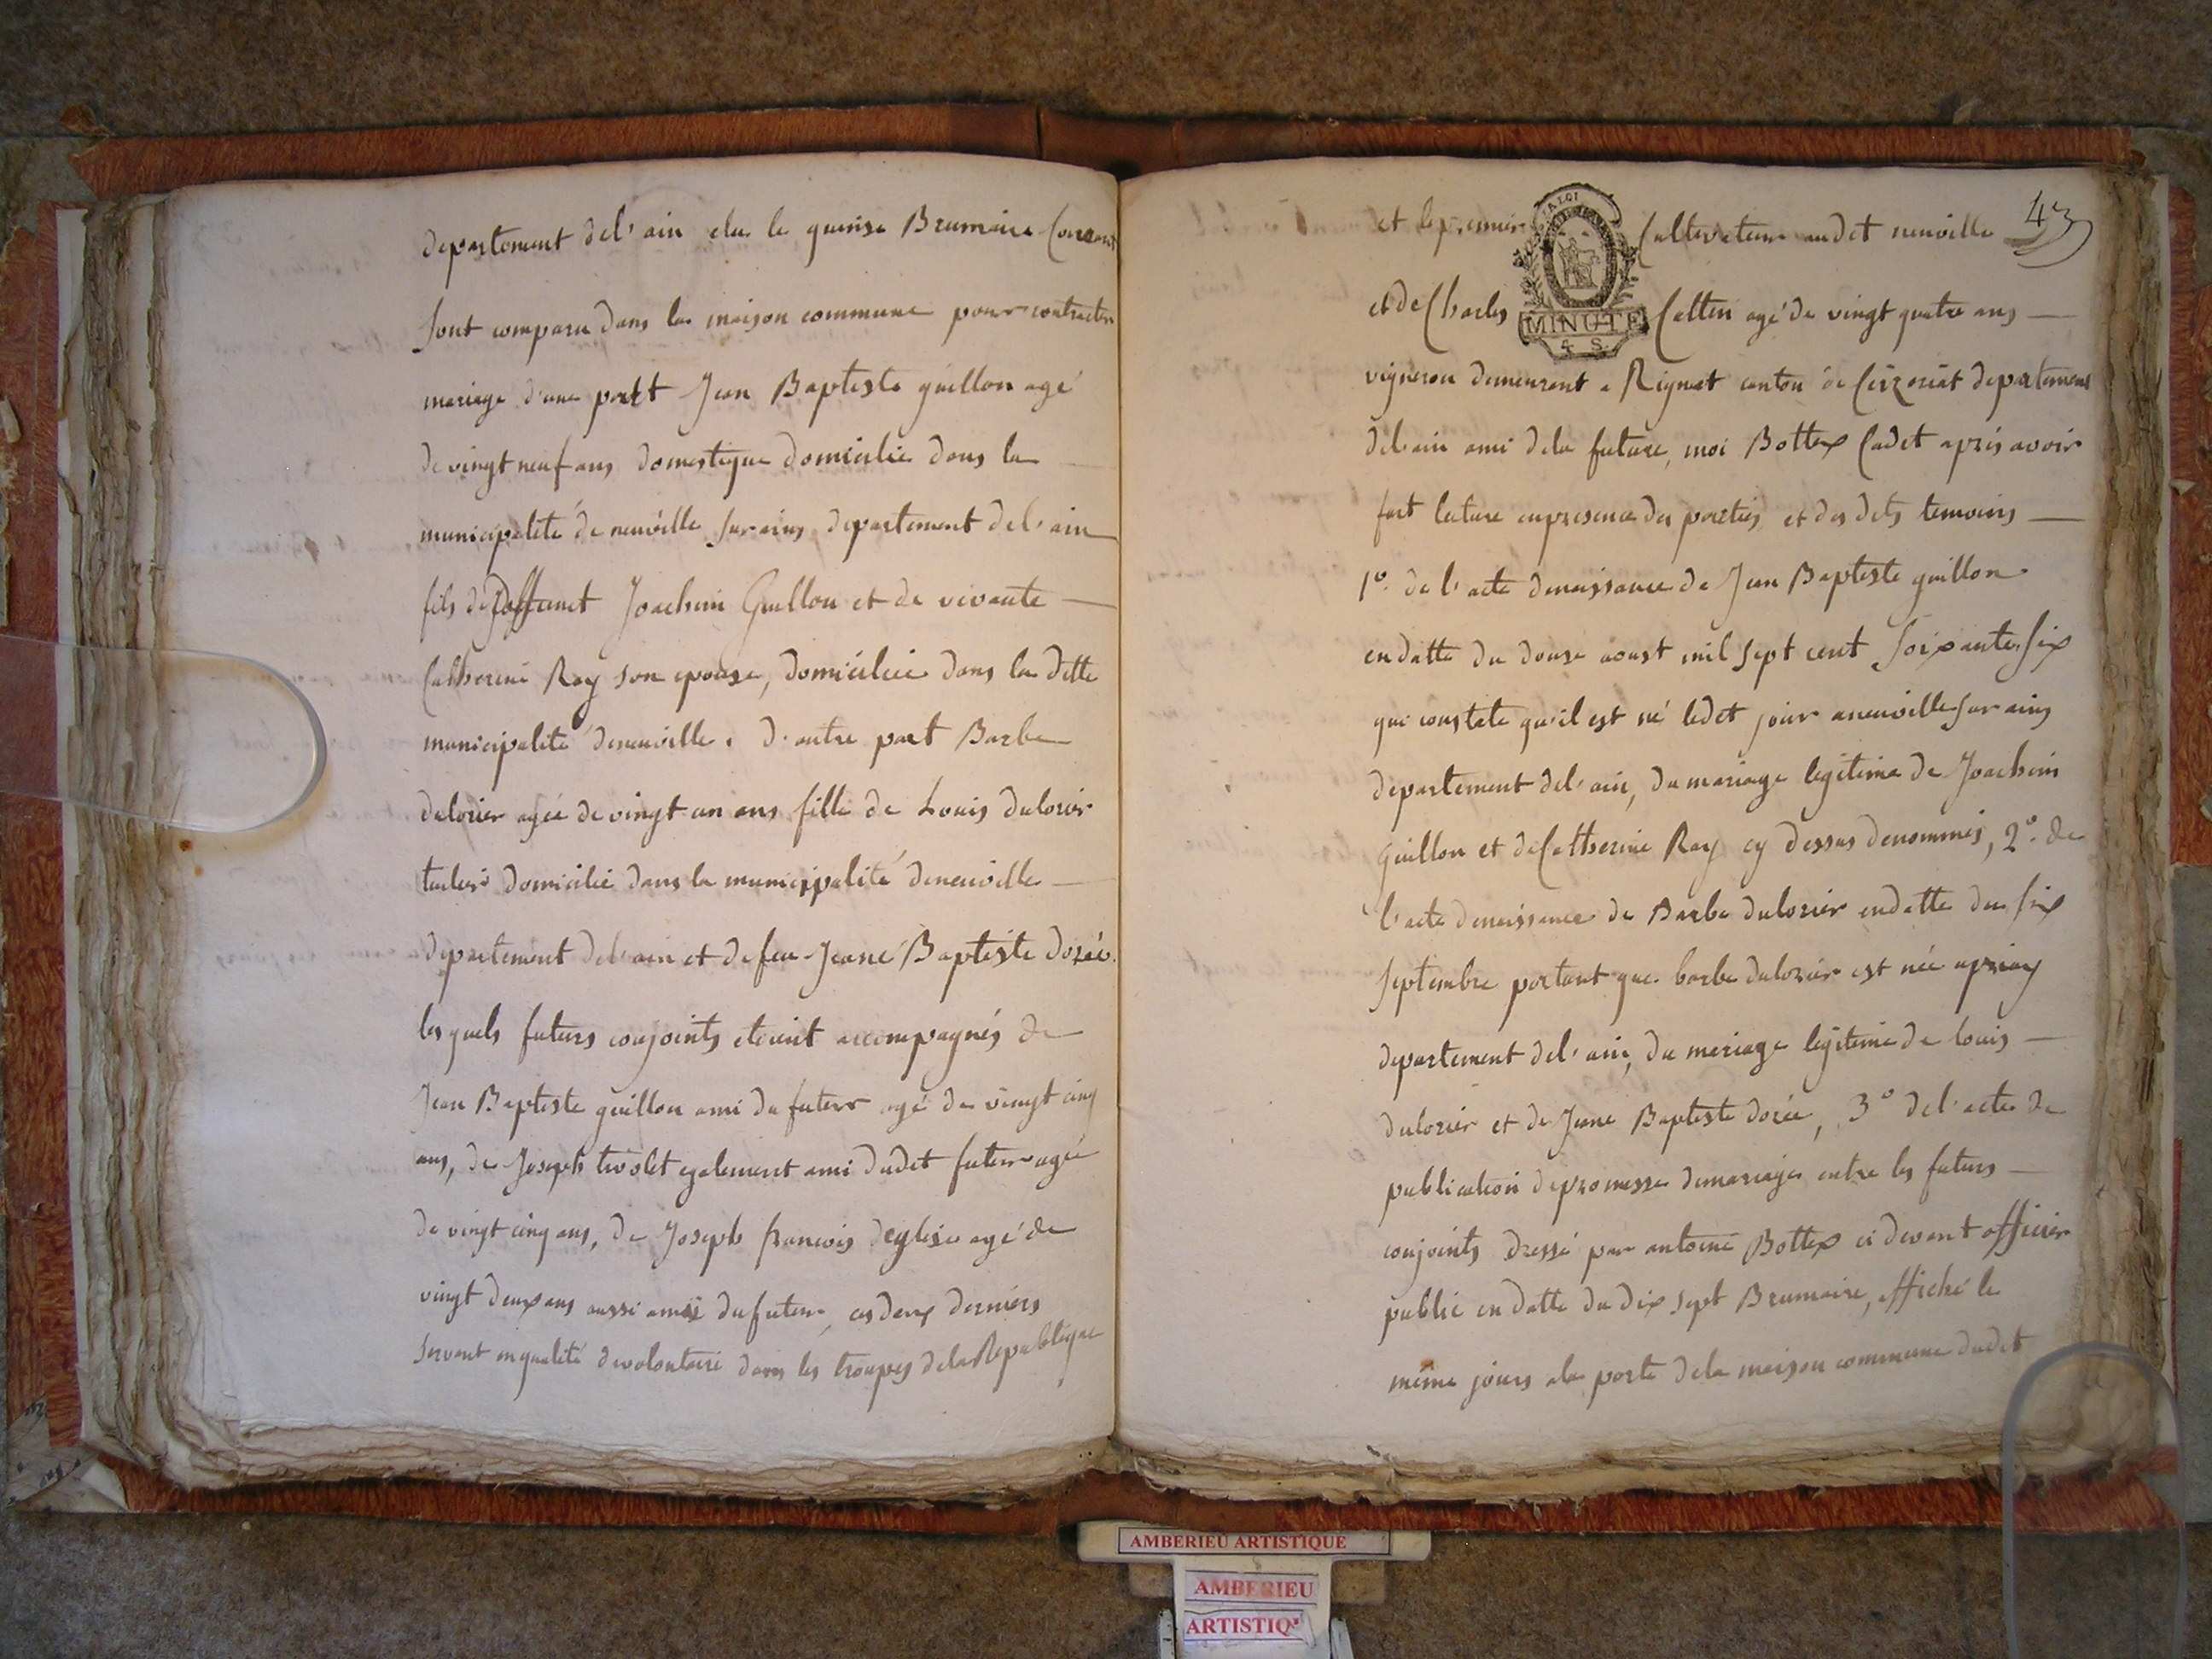 departement del'ain elu le quinse Brumaire Courant
sont comparu dans la maison commune pour contracter
mariage d'une part Jean Baptiste guillon agé
de vingt neuf ans domestique domicilié dans la
municipalité de neuville sur ains departement del'ain
fils de deffunct Joachim Guillon et de vivante
Catherine Ray son epouse, domiciliée dans la ditte
municipalité deneuville. d'autre part Barbe
dulorier agée de vingt un ans fille de Louis dulorier
domicilié dans la municipalité deneuville
departement del'ain et de feu Jeane Baptiste dorée.
les quels futurs conjoints etoient accompagnés de
Jean Baptiste guillon ami du futur agé de vingt cinq
ans, de Joseph tivolet egalement ami dudit futur agé
de vingt cinq ans, de Joseph francois deglise agé de
vingt deux ans aussi ami du futur, ces deux derniers
servant en qualité devolontaire dans les troupes dela Republique
43
et le premier Cultivateur audit neuville
A LOI
et de Charles Cattin agé de vingt quatre ans
MINUTE
4 S.
vigneron demeurant a Rignat canton de Ceizeriat departement
del'ain ami dela future, moi Bottex Cadet après avoir
fait lecture enpresence des parties et des dits temoins
1º. de l'acte denaissance de Jean Baptiste guillon
en datte du douse aoust mil sept cent soixante six
qui constate qu'il est né ledit jour aneuville sur ains
departement del'ain, du mariage legitime de Joachim
Guillon et de Catherine Ray cy dessus denommés, 2º. de
l'acte denaissance de Barbe dulorier endatte du six
septembre portant que barbe dulorier est née apriay
departement del'ain, du mariage legitime de louis
dulorier et de Jeane Baptiste dorée, 3º del'acte de
publication depromesse demariage entre les futurs
conjoints dressé par antoine Bottex ci devant officier
public en datte du dix sept Brumaire, affiché le
même jours ala porte dela maison commune dudit
AMBERIEU ARTISTIQUE
AMBERIEU
ARTISTIQ